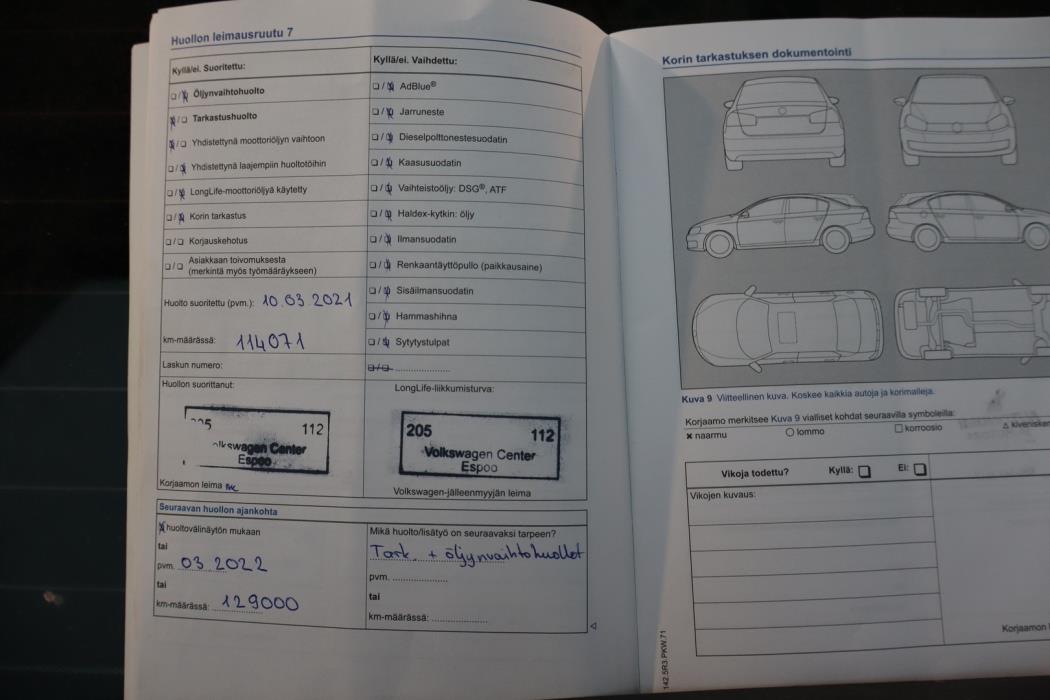 Huollon leimausruutu 7
Kyllä/ei. Suoritettu:
Öljynvaihtohuolto
Tarkastushuolto
Yhdistettynä moottoriöljyn vaihtoon
Yhdistettynä laajempiin huoltotöihin
LongLife-moottoriöljyä käytetty
Korin tarkastus
Korjauskehotus
Asiakkaan toivomuksesta
(merkintä myös työmääräykseen)
Huolto suoritettu (pvm.): 10.03 2021
km-määrässä: 114071
Laskun numero:
Huollon suorittanut:
112
Volkswagen Center
Espoo
Korjaamon leima
Kyllä/ei. Vaihdettu:
AdBlue®
Jarruneste
Dieselpolttonestesuodatin
Kaasusuodatin
Vaihteistoöljy: DSG®, ATF
Haldex-kytkin: öljy
Ilmansuodatin
Renkaantäyttöpullo (paikkausaine)
Sisäilmansuodatin
Hammashihna
Sytytystulpat
LongLife-liikkumisturva:
205 112
Volkswagen Center
Espoo
Volkswagen-jälleenmyyjän leima
Seuraavan huollon ajankohta
huoltovälinäytön mukaan
tai
pvm. 03 2022
tai
km-määrässä: 129000
Mikä huolto/lisätyö on seuraavaksi tarpeen?
Tark. + öljynvaihtohuollot
pvm.
tai
km-määrässä:
Korin tarkastuksen dokumentointi
Kuva 9 Viitteellinen kuva. Koskee kaikkia autoja ja korimalleja.
Korjaamo merkitsee Kuva 9 vialliset kohdat seuraavilla symboleilla:
naarmu lommo korroosio
Vikoja todettu? Kyllä: Ei:
Vikojen kuvaus:
Korjaamon
142.5R3.PKW.71